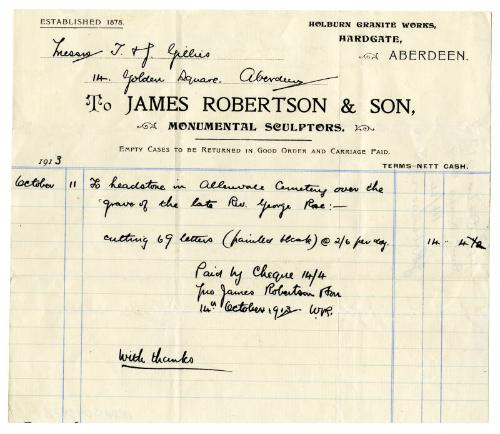 ESTABLISHED 1878.
HOLBURN GRANITE WORKS,
HARDGATE,
ABERDEEN.
Messrs T. & J. Gillies
14. Golden Square. Aberdeen
TO JAMES ROBERTSON & SON,
MONUMENTAL SCULPTORS.
EMPTY CASES TO BE RETURNED IN GOOD ORDER AND CARRIAGE PAID.
1913 TERMS-NETT CASH.
October 11 To headstone in Allenvale Cemetery over the
grave of the late Rev. George Rose:-
cutting 69 letters (painted black) @ 2/6 per doz 14 - 4½
Paid by Cheque 14/4
James Robertson
14th October 1913 W.R.
With thanks